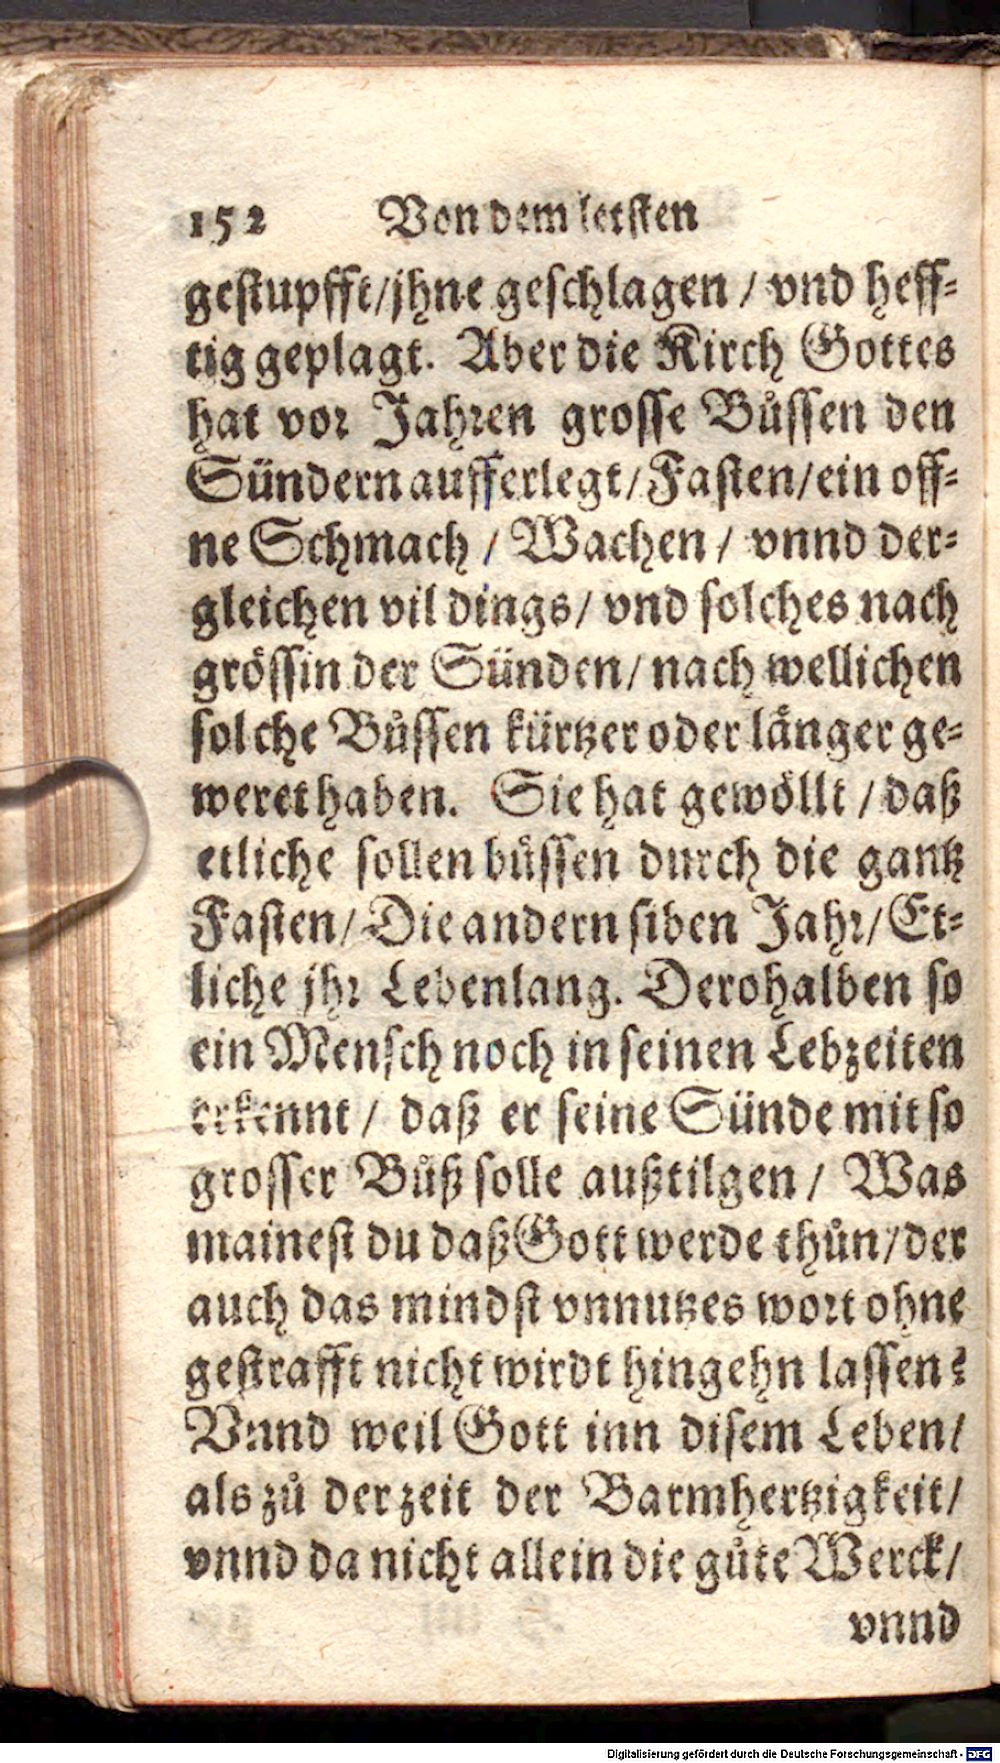 152 Von dem letsten
gestupfft/jhne geschlagen / vnd heff-
tig geplagt. Aber die Kirch Gottes
hat vor Jahren grosse Bůssen den
Sündern aufferlegt/Fasten/ein off-
ne Schmach / Wachen / vnnd der-
gleichen vil dings/ vnd solches nach
grössin der Sünden/ nach wellichen
solche Bůssen kürtzer oder länger ge-
weret haben. Sie hat gewöllt / daß
etliche sollen bůssen durch die gantz
Fasten/ Die andern siben Jahr/ Et-
liche jhr Lebenlang. Derohalben so
ein Mensch noch in seinen Lebzeiten
erkennt / daß er seine Sünde mit so
grosser Bůß solle außtilgen / Was
mainest du daß Gott werde thůn/der
auch das mindst vnnutzes wort ohne
gestrafft nicht wirdt hingehn lassen?
Vnnd weil Gott inn disem Leben/
als zů der zeit der Barmhertzigkeit/
vnnd da nicht allein die gůte Werck/
vnnd
Digitalisierung gefördert durch die Deutsche Forschungsgemeinschaft - DFG